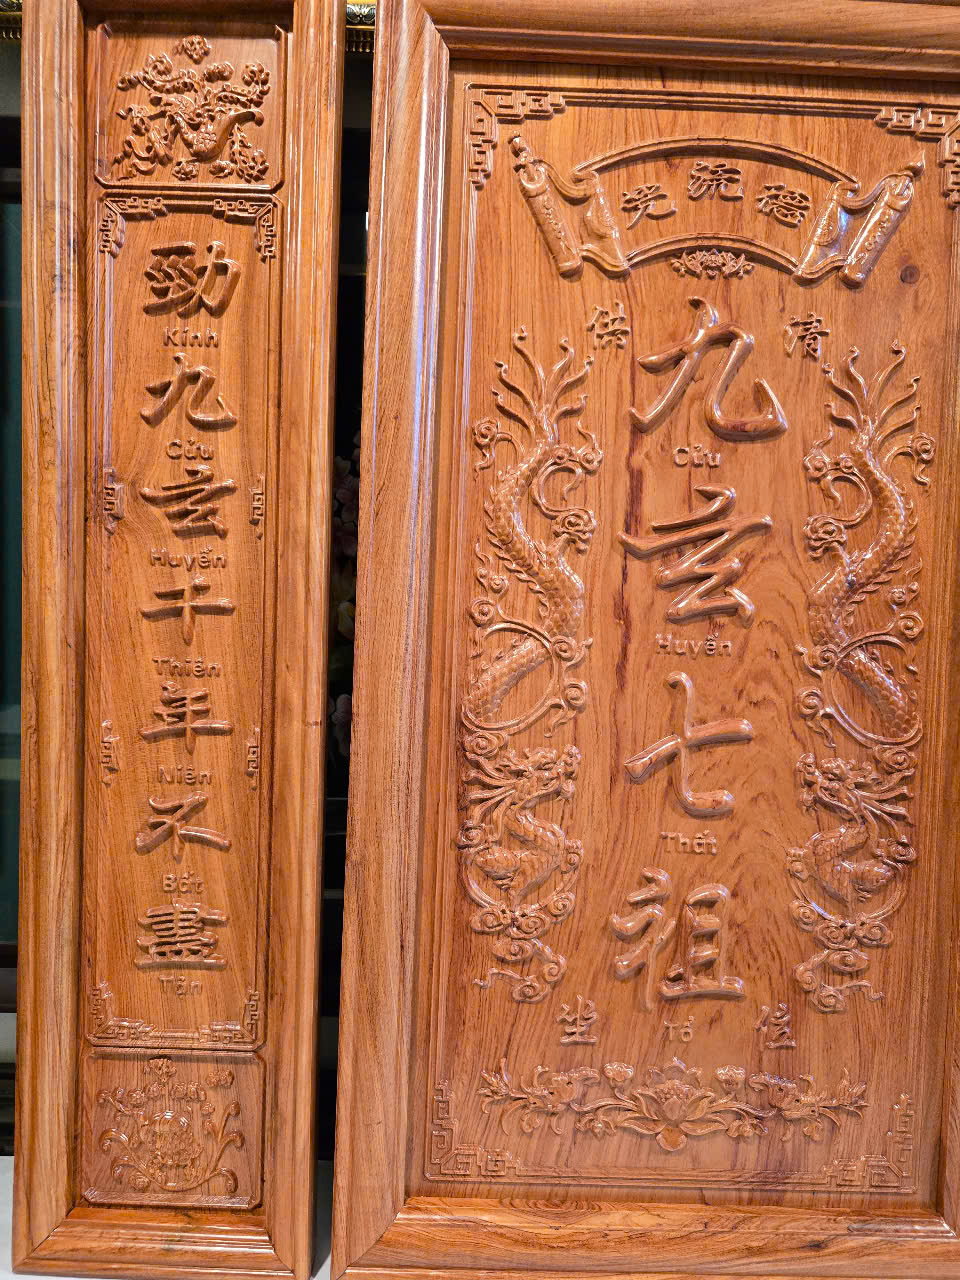 勁
Kính
九
Cửu
玄
Huyền
千
Thiên
年
Niên
不
Bất
盡
Tận
德流光
供 清
九
Cửu
玄
Huyền
七
Thất
祖
Tổ
坐 位